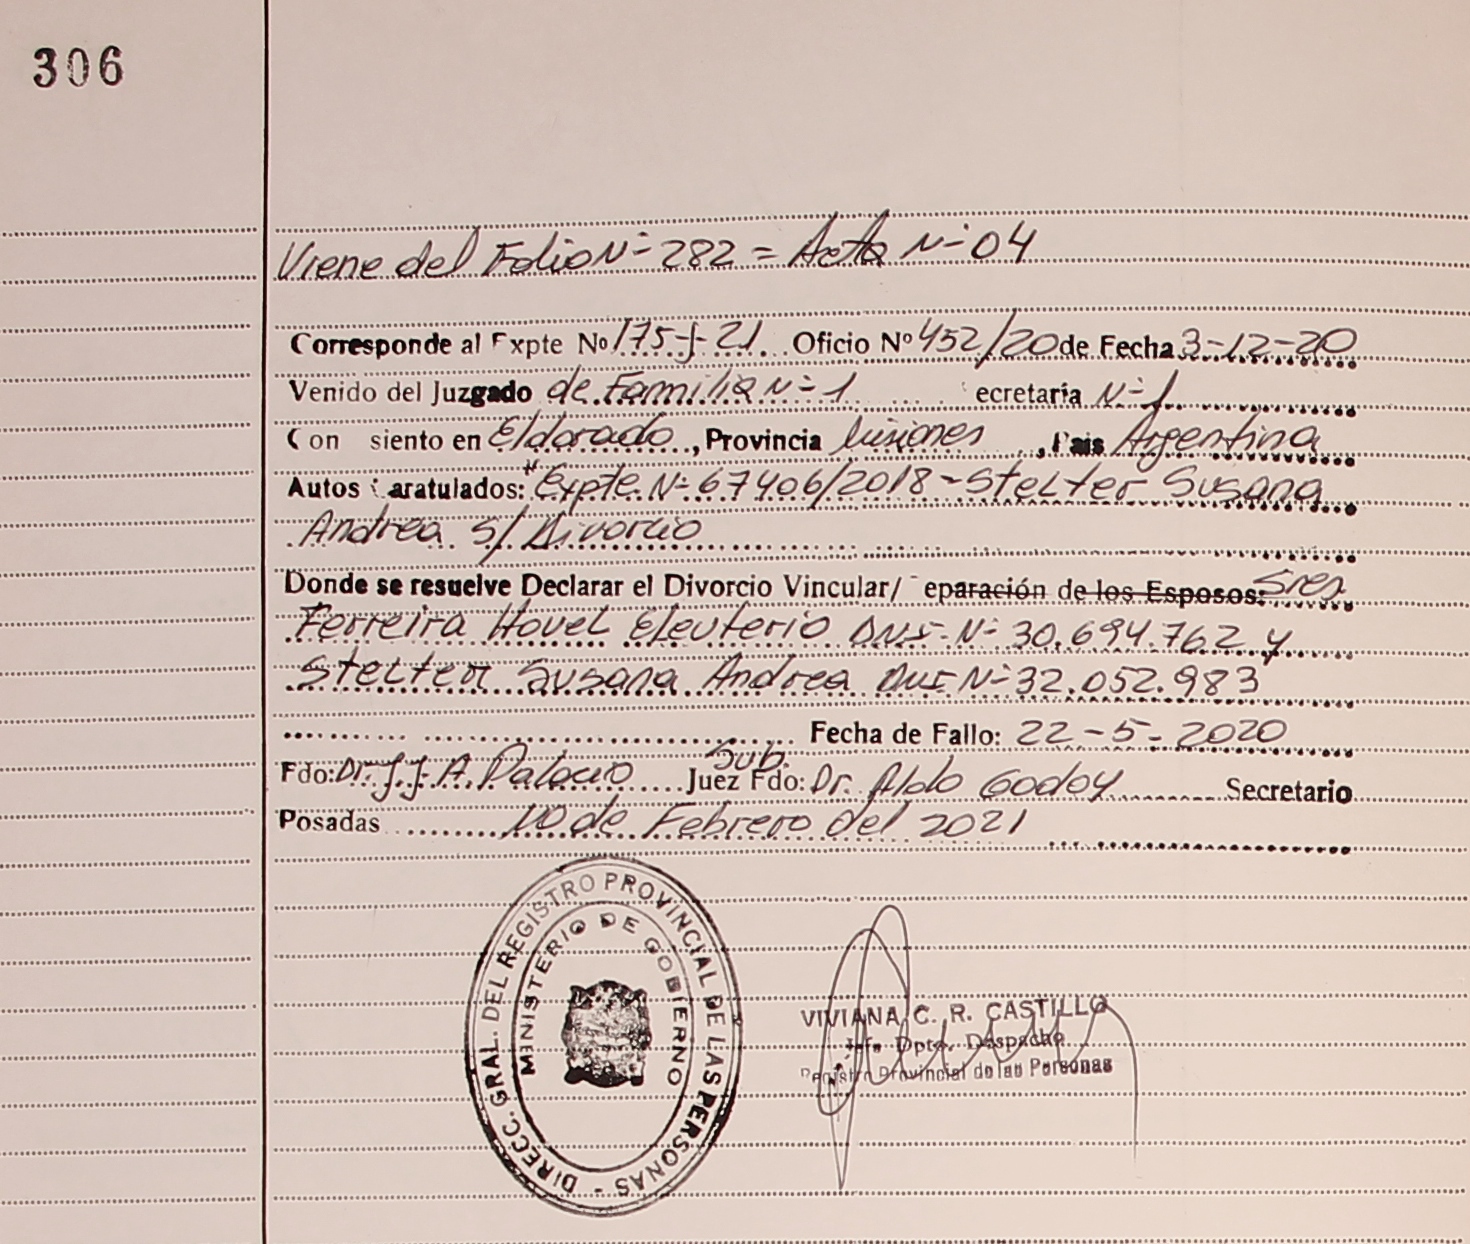 306
Viene del Folio Nº 282 = Acta Nº 04
Corresponde al Expte Nº 175-J-21. Oficio Nº 452/20 de Fecha 3-12-20
Venido del Juzgado de Familia Nº 1 ecretaría Nº 1
Con siento en Eldorado, Provincia Misiones, País Argentina
Autos Caratulados: "Expte. Nº 67406/2018 - Stelter Susana
Andrea s/ Divorcio
Donde se resuelve Declarar el Divorcio Vincular/ eparación de los Esposos: Sres
Ferreira Hovel Eleuterio DNI. Nº 30.694.762 y
Stelter Susana Andrea DNI Nº 32.052.983
Fecha de Fallo: 22-5-2020
Fdo: Dr. J. J. A. Palacio Sub. Juez Fdo: Dr. Aldo Godoy Secretario
Posadas 10 de Febrero del 2021
DIRECC. GRAL. DEL REGISTRO PROVINCIAL DE LAS PERSONAS -
MINISTERIO DE GOBIERNO
VIVIANA C. R. CASTILLO
Jefe Dpto. Despacho
Registro Provincial de las Personas